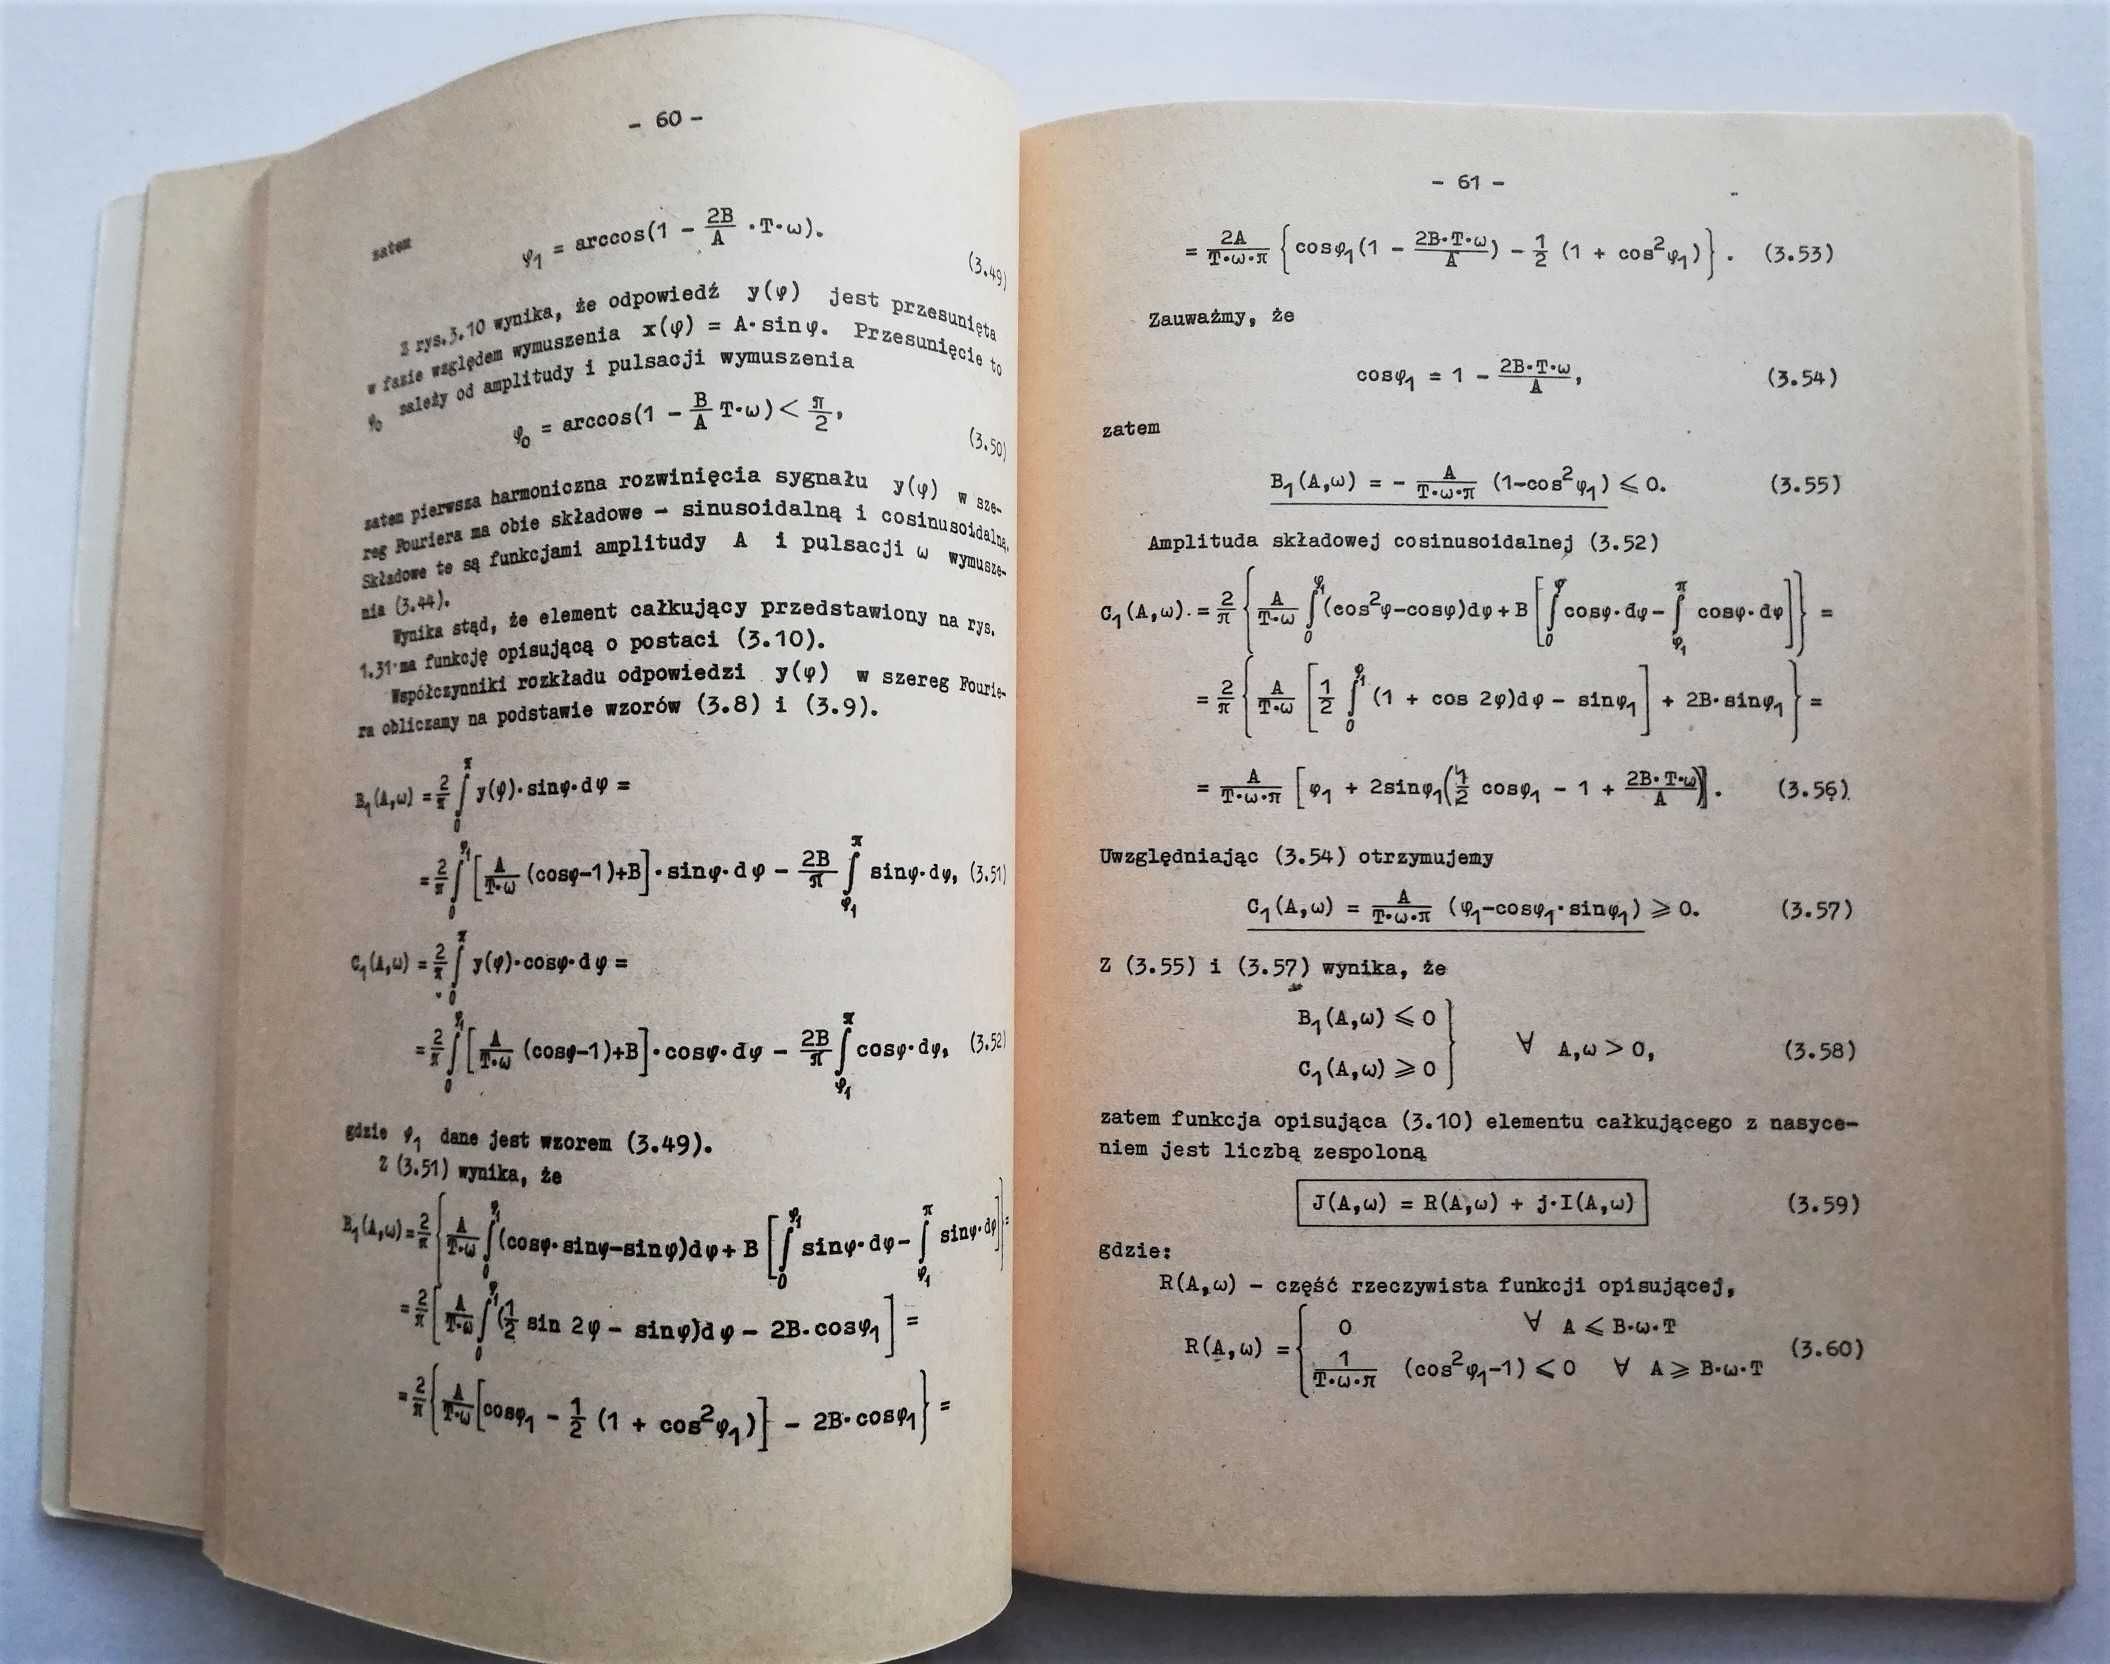 - 60 -
zatem
φ₁ = arccos(1 - 2B/A ·T·ω). (3.49)
Z rys.3.10 wynika, że odpowiedź y(φ) jest przesunięta
w fazie względem wymuszenia x(φ) = A·sinφ. Przesunięcie to
φ₀ zależy od amplitudy i pulsacji wymuszenia
φ₀ = arccos(1 - B/A T·ω) < π/2, (3.50)
zatem pierwsza harmoniczna rozwinięcia sygnału y(φ) w sze-
reg Fouriera ma obie składowe - sinusoidalną i cosinusoidalną.
Składowe te są funkcjami amplitudy A i pulsacji ω wymusze-
nia (3.44).
Wynika stąd, że element całkujący przedstawiony na rys.
1.31 ma funkcję opisującą o postaci (3.10).
Współczynniki rozkładu odpowiedzi y(φ) w szereg Fourie-
ra obliczamy na podstawie wzorów (3.8) i (3.9).
B₁(A,ω) = 2/π ∫₀^π y(φ)·sinφ·dφ =
= 2/π ∫₀^φ₁ [A/(T·ω) (cosφ-1)+B]·sinφ·dφ - 2B/π ∫_φ₁^π sinφ·dφ, (3.51)
C₁(A,ω) = 2/π ∫₀^π y(φ)·cosφ·dφ =
= 2/π ∫₀^φ₁ [A/(T·ω) (cosφ-1)+B]·cosφ·dφ - 2B/π ∫_φ₁^π cosφ·dφ, (3.52)
gdzie φ₁ dane jest wzorem (3.49).
Z (3.51) wynika, że
B₁(A,ω) = 2/π {A/(T·ω) ∫₀^φ₁ (cosφ·sinφ-sinφ)dφ + B [∫₀^φ₁ sinφ·dφ - ∫_φ₁^π sinφ·dφ]} =
= 2/π [A/(T·ω) ∫₀^φ₁ (1/2 sin 2φ - sinφ)dφ - 2B·cosφ₁] =
= 2/π {A/(T·ω) [cosφ₁ - 1/2 (1 + cos²φ₁)] - 2B·cosφ₁} =
- 61 -
= 2A/(T·ω·π) {cosφ₁(1 - 2B·T·ω/A) - 1/2 (1 + cos²φ₁)}. (3.53)
Zauważmy, że
cosφ₁ = 1 - 2B·T·ω/A, (3.54)
zatem
B₁(A,ω) = - A/(T·ω·π) (1-cos²φ₁) ⩽ 0. (3.55)
Amplituda składowej cosinusoidalnej (3.52)
C₁(A,ω) = 2/π {A/(T·ω) ∫₀^φ₁ (cos²φ-cosφ)dφ + B [∫₀^φ cosφ·dφ - ∫_φ₁^π cosφ·dφ]} =
= 2/π {A/(T·ω) [1/2 ∫₀^φ₁ (1 + cos 2φ)dφ - sinφ₁] + 2B·sinφ₁} =
= A/(T·ω·π) [φ₁ + 2sinφ₁(1/2 cosφ₁ - 1 + 2B·T·ω/A)]. (3.56)
Uwzględniając (3.54) otrzymujemy
C₁(A,ω) = A/(T·ω·π) (φ₁-cosφ₁·sinφ₁) ⩾ 0. (3.57)
Z (3.55) i (3.57) wynika, że
B₁(A,ω) ⩽ 0
∀ A,ω > 0, (3.58)
C₁(A,ω) ⩾ 0
zatem funkcja opisująca (3.10) elementu całkującego z nasyce-
niem jest liczbą zespoloną
J(A,ω) = R(A,ω) + j·I(A,ω) (3.59)
gdzie:
R(A,ω) - część rzeczywista funkcji opisującej,
0 ∀ A ⩽ B·ω·T
R(A,ω) = { (3.60)
1/(T·ω·π) (cos²φ₁-1) ⩽ 0 ∀ A ⩾ B·ω·T